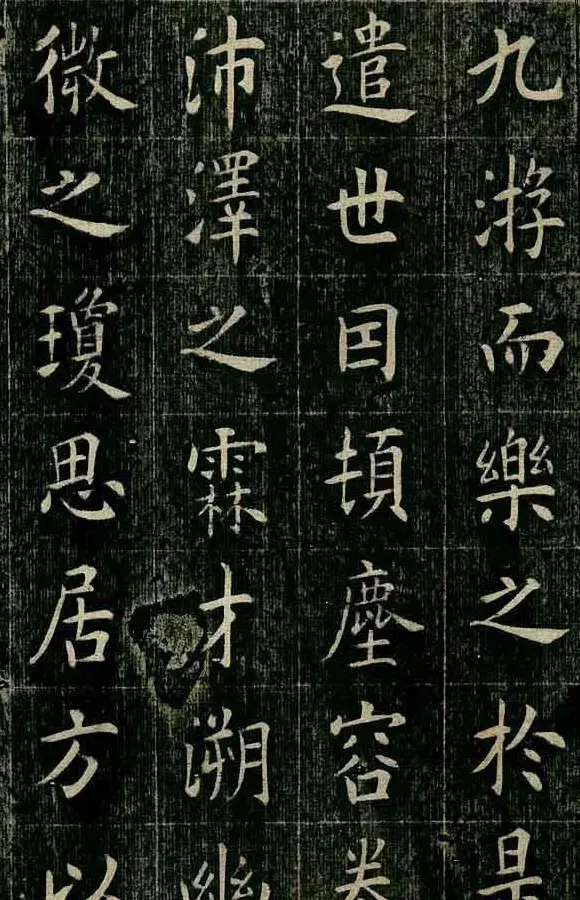 九游而樂之於是
遣世囙頓塵容卷
沛澤之霖才溯幽
微之瓊思居方以